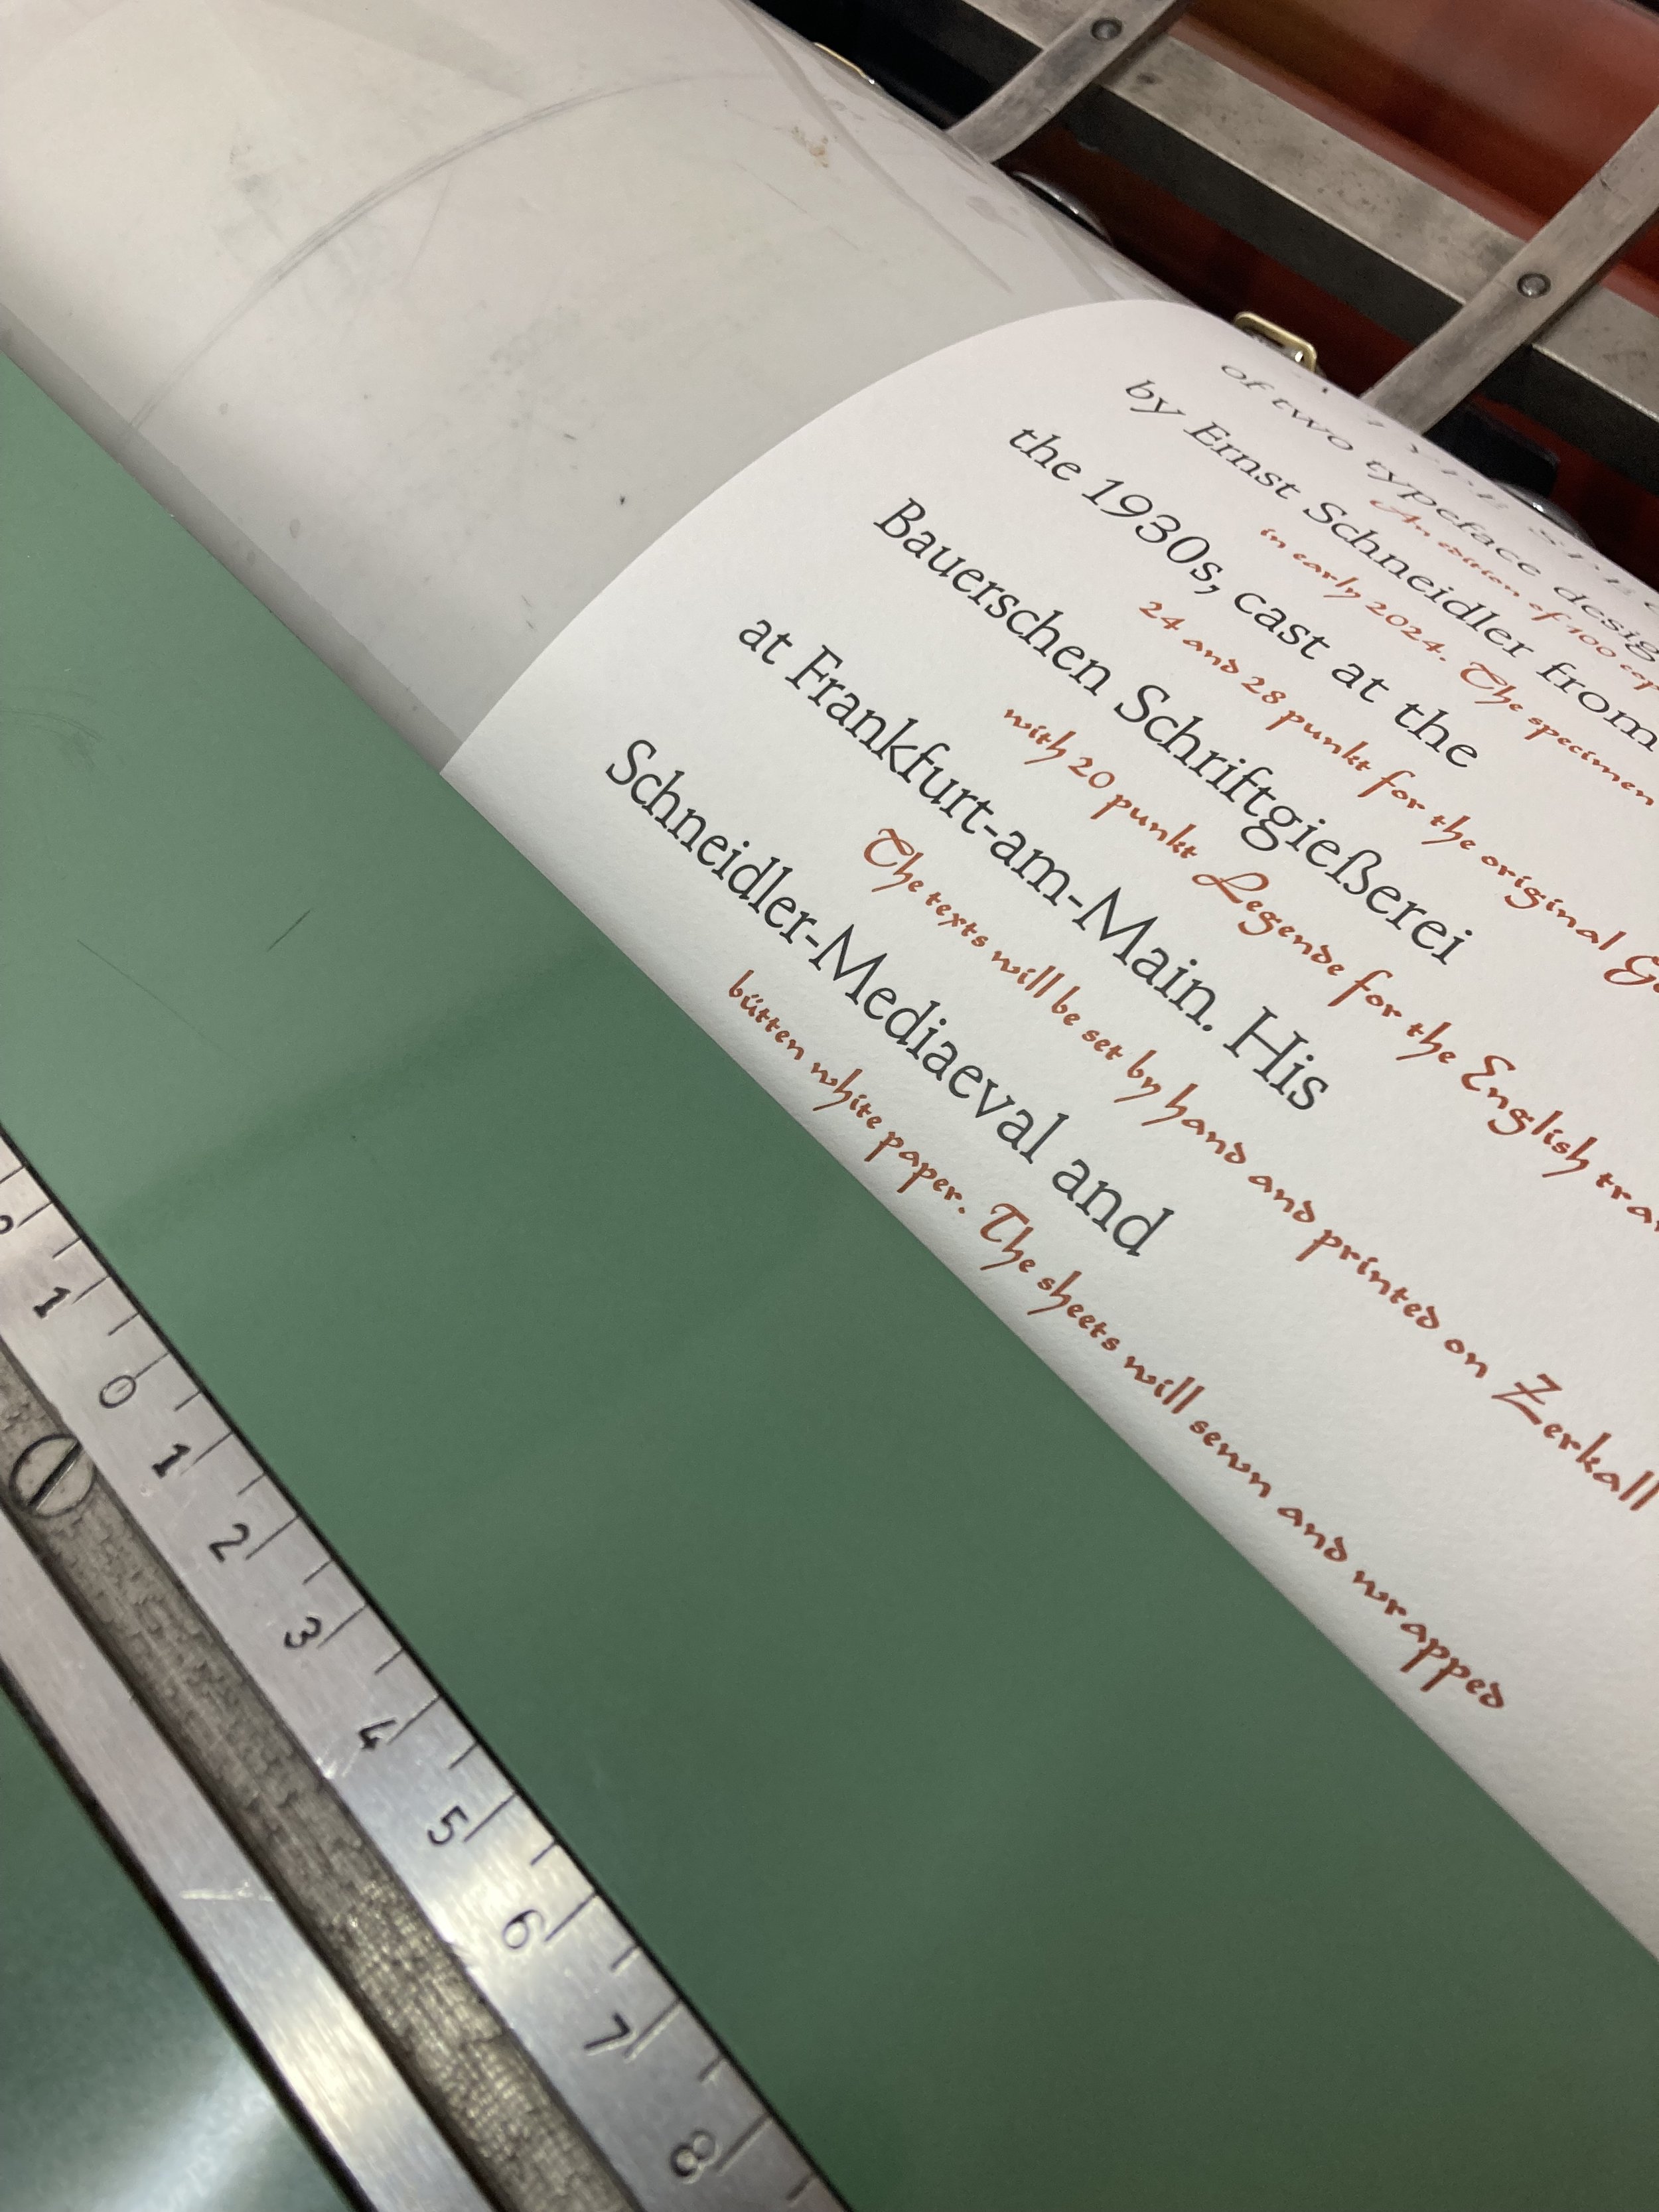 of two typeface desig
An edition of 100 cop
by Ernst Schneidler from
in early 2024. The specimen
the 1930s, cast at the
24 and 28 punkt for the original Ge
Bauerschen Schriftgießerei
with 20 punkt Legende for the English tra
at Frankfurt-am-Main. His
The texts will be set by hand and printed on Zerkall
Schneidler-Mediaeval and
bütten white paper. The sheets will sewn and wrapped
2 1 0 1 2 3 4 5 6 7 8